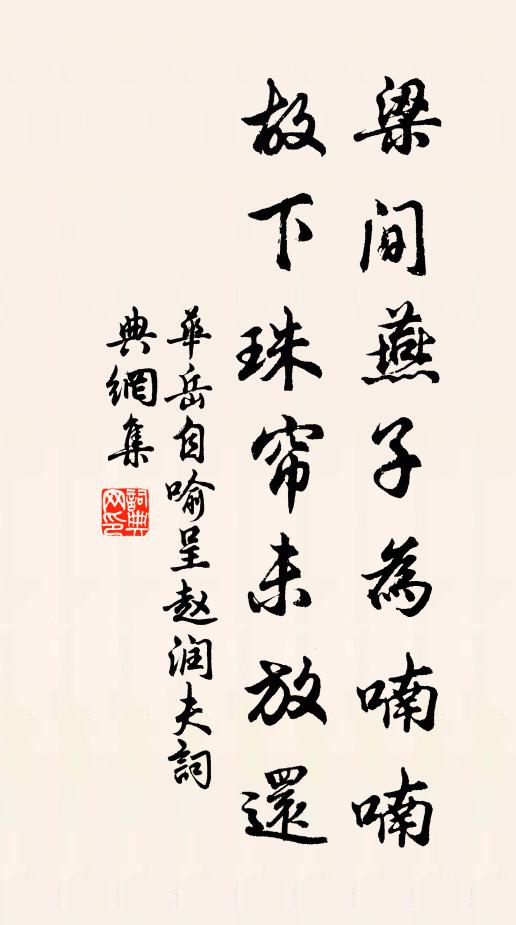 梁间燕子為喃喃
故下珠帘未放還
華岳自喻呈赵润夫詞
典網集
詞典网印